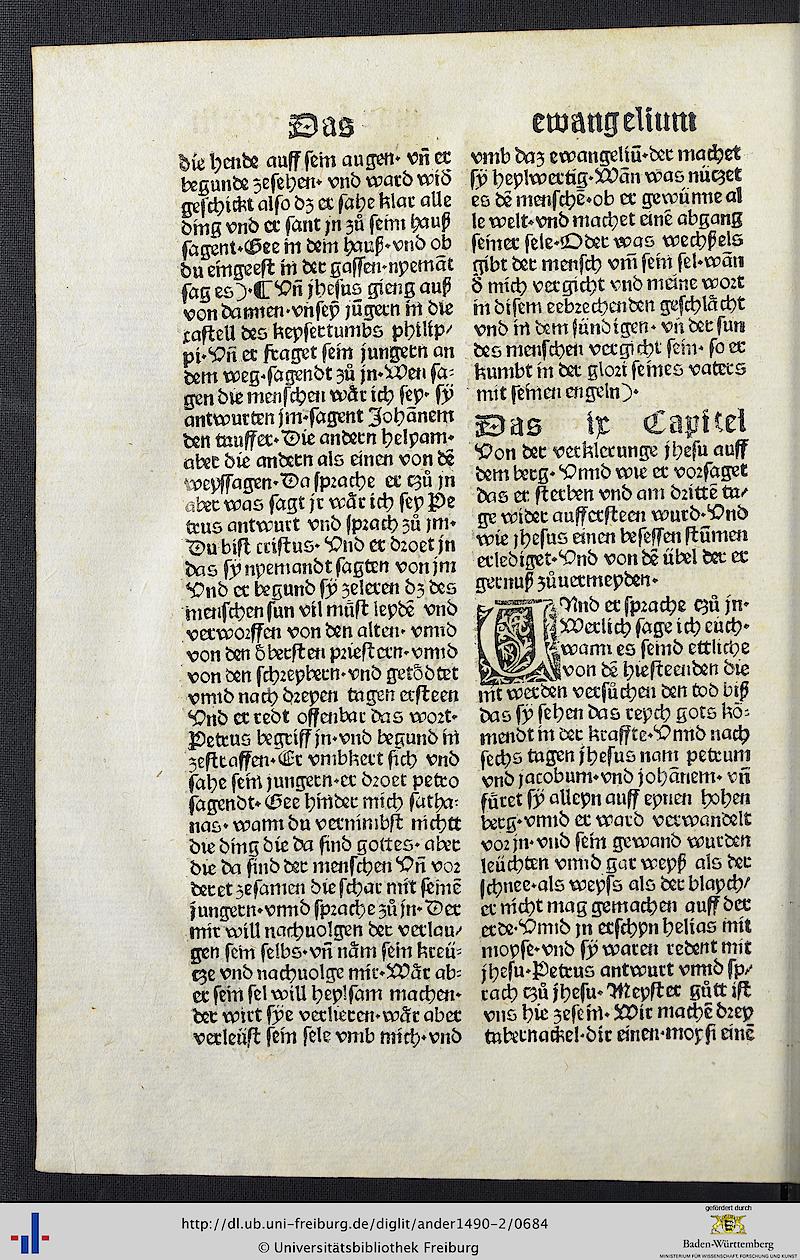 Das
die hende auff sein augen· vñ er
begunde zesehen· vnd ward wid̕
geschickt also dz er sahe klar alle
ding vnd er sant jn zů seim hauß
sagent· Gee in dein hauß· vnd ob
du eingeest in der gassen· nyemãt
sag es)·¶ Vñ jhesus gieng auß
von dannen· vñ sey jũgern in die
castell des keysertumbs philip/
pi· Vñ er fraget sein jungern an
dem weg· sagendt zů jn· Wen sa:
gen die menschen wår ich sey· sÿ
antwurten jm· sagent Johãnem
den tauffer· Die andern helyam·
aber die andern als einen von dẽ
weyssagen· Da sprache er czů jn
aber was sagt jr wår ich sey Pe
trus antwurt vnd sprach zů jm·
Du bist cristus· Vnd er droet jn
das sÿ nyemandt sagten von jm
Vnd er begund sÿ zeleren dz des
menschen sun vil můst leydẽ vnd
verworffen von den alten· vnnd
von den öbersten priestern· vnnd
von den schreybern· vnd getödtet
vnnd nach dreyen tagen ersteen
Vnd er redt offenbar das wort·
Petrus begriff jn· vnd begund in
zestraffen· Er vmbkert sich vnd
sahe sein jungern· er droet petro
sagendt· Gee hinder mich satha:
nas· wann du vernimbst nichtt
die ding die da sind gottes· aber
die da sind der menschen Vñ vor
deret zesamen die schar mit seinẽ
jungern· vnnd sprache zů jn· Der
mir will nachuolgen der verlau/
gen sein selbs· vñ näm sein kreü:
cze vnd nachuolge mir· Wår ab:
er sein sel will heylsam machen·
der wirt sÿe verlieren· wår aber
verleüst sein sele vmb mich· vnd
ewangelium
vmb daz ewangeliũ· der machet
sÿ heylwertig· Wãn was nüczet
es dẽ menschẽ· ob er gewünne al
le welt· vnd machet einẽ abgang
seiner sele· Oder was wechßels
gibt der mensch vm̃ sein sel· wãn
d̕ mich vergicht vnd meine wort
in disem eebrechenden geschlächt
vnd in dem sündigen· vñ der sun
des menschen vergicht sein· so er
kumbt in der glori seines vaters
mit seinen engeln)·
Das ix Capitel
Von der verklerunge jhesu auff
dem berg· Vnnd wie er vorsaget
das er sterben vnd am drittẽ ta/
ge wider auffersteen wurd· Vnd
wie jhesus einen besessen stũmen
erlediget· Vnd von dẽ übel der er
gernuß zůuermeyden·
VNnd er sprache czů jn·
Werlich sage ich euch·
wann es seind ettliche
von dẽ hiesteenden die
nit werden versůchen den tod biß
das sÿ sehen das reych gots kö:
mendt in der kraffte· Vnnd nach
sechs tagen jhesus nam petrum
vnd jacobum· vnd johãnem· vñ
fůret sÿ alleyn auff eynen hohen
berg· vnnd er ward verwandelt
vor jn· vnd sein gewand wurden
leüchten vnnd gar weyß als der
schnee· als weyss als der blaych/
er nicht mag gemachen auff der
erde· Vnnd jn erschyn helias mit
moyse· vnd sÿ waren redent mit
jhesu· Petrus antwurt vnnd sp/
rach czů jhesu· Meyster gůtt ist
vns hie zesein· Wir machẽ drey
tabernackel· dir einen· moysi einẽ
http://dl.ub.uni-freiburg.de/diglit/ander1490-2/0684
© Universitätsbibliothek Freiburg
gefördert durch
Baden-Württemberg
MINISTERIUM FÜR WISSENSCHAFT, FORSCHUNG UND KUNST